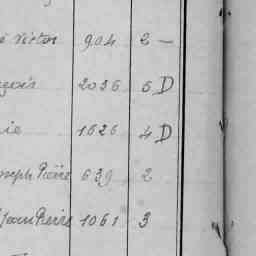 Victor 904 2 —
2036 5 D
ie 1626 4 D
oseph Pierre 639 2
Jean Pierre 1061 3